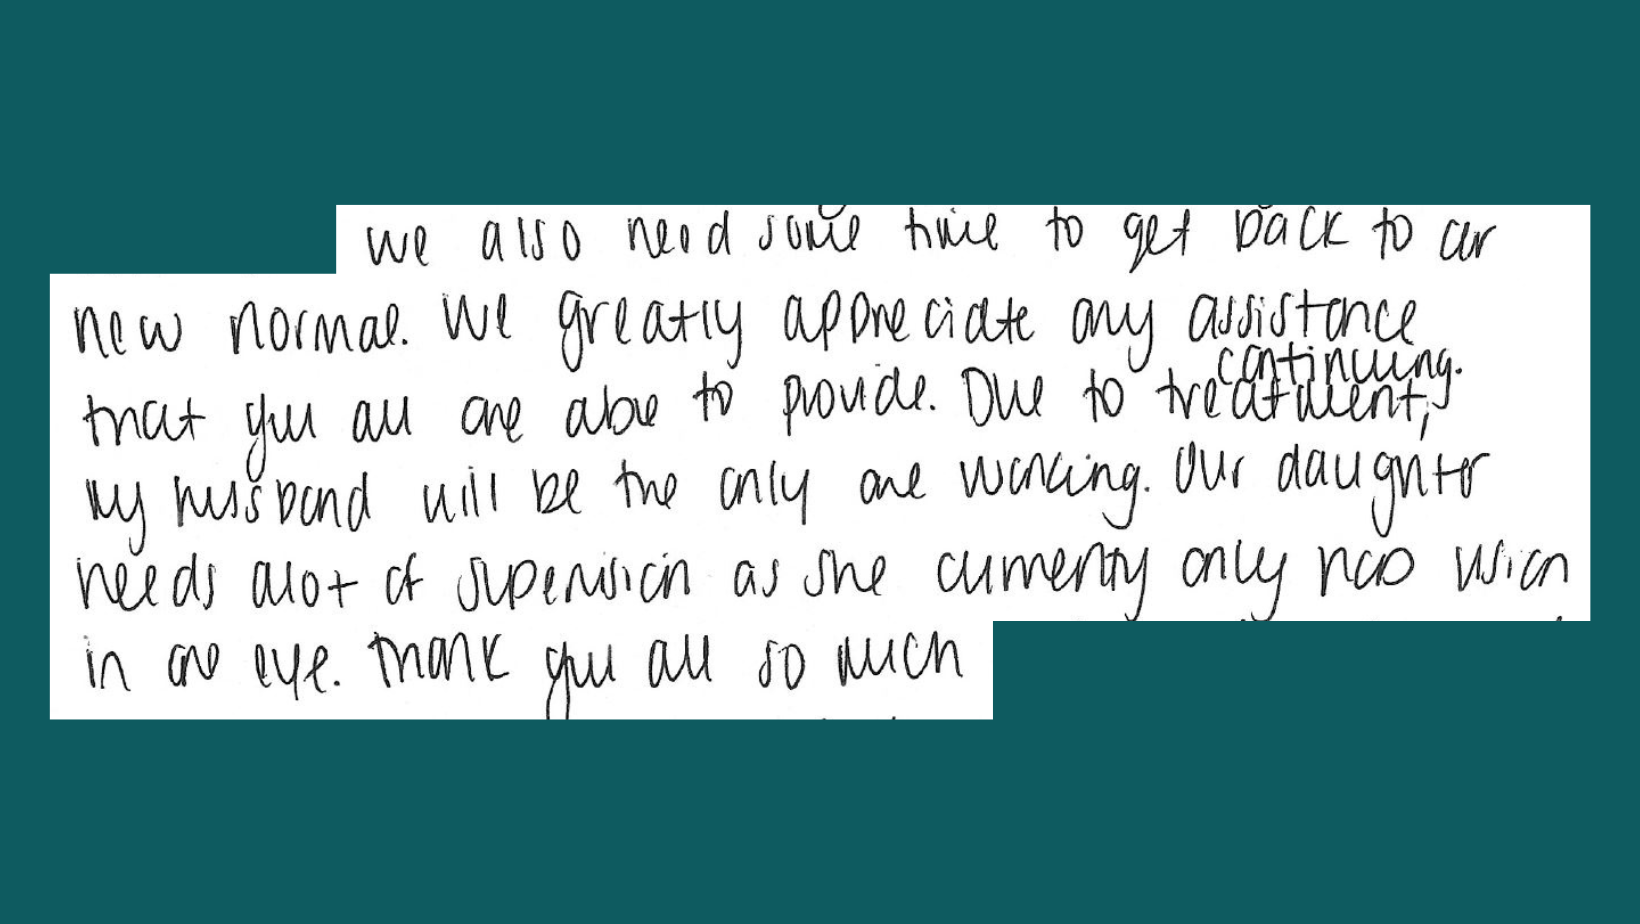 we also need some time to get back to our
new normal. We greatly appreciate any assistance
that you all are able to provide. Due to treatment, continuing.
my husband will be the only one working. Our daughter
needs alot of supervision as she currently only has vision
in one eye. Thank you all so much